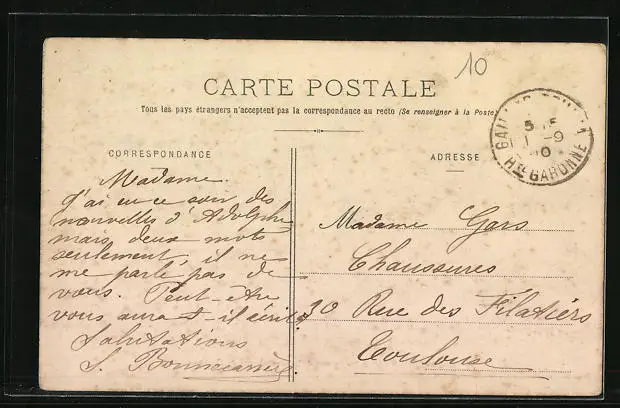 10
CARTE POSTALE
Tous les pays étrangers n'acceptent pas la correspondance au recto (Se renseigner à la Poste)
CORRESPONDANCE
ADRESSE
Hte GARONNE
Madame.
J'ai eu ce soir des
nouvelles d'Adolphe
mais deux mots
seulement, il ne
me parle pas de
vous. Peut-être
vous aura-t-il écrit,
Salutations
Madame Gars
Chaussures
30 Rue des Filatiers
Toulouse